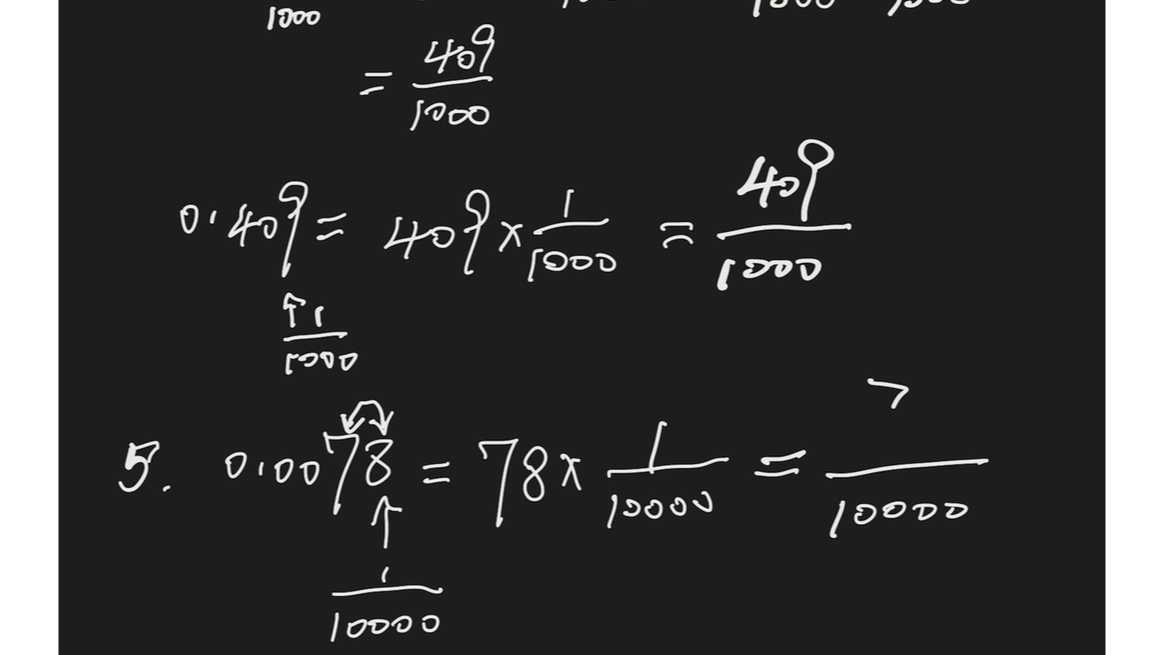 1000
= 409/1000
0.409 = 409 × 1/1000 = 409/1000
↑ 1/1000
5. 0.0078 = 78 × 1/10000 = 7/10000
↑
1/10000